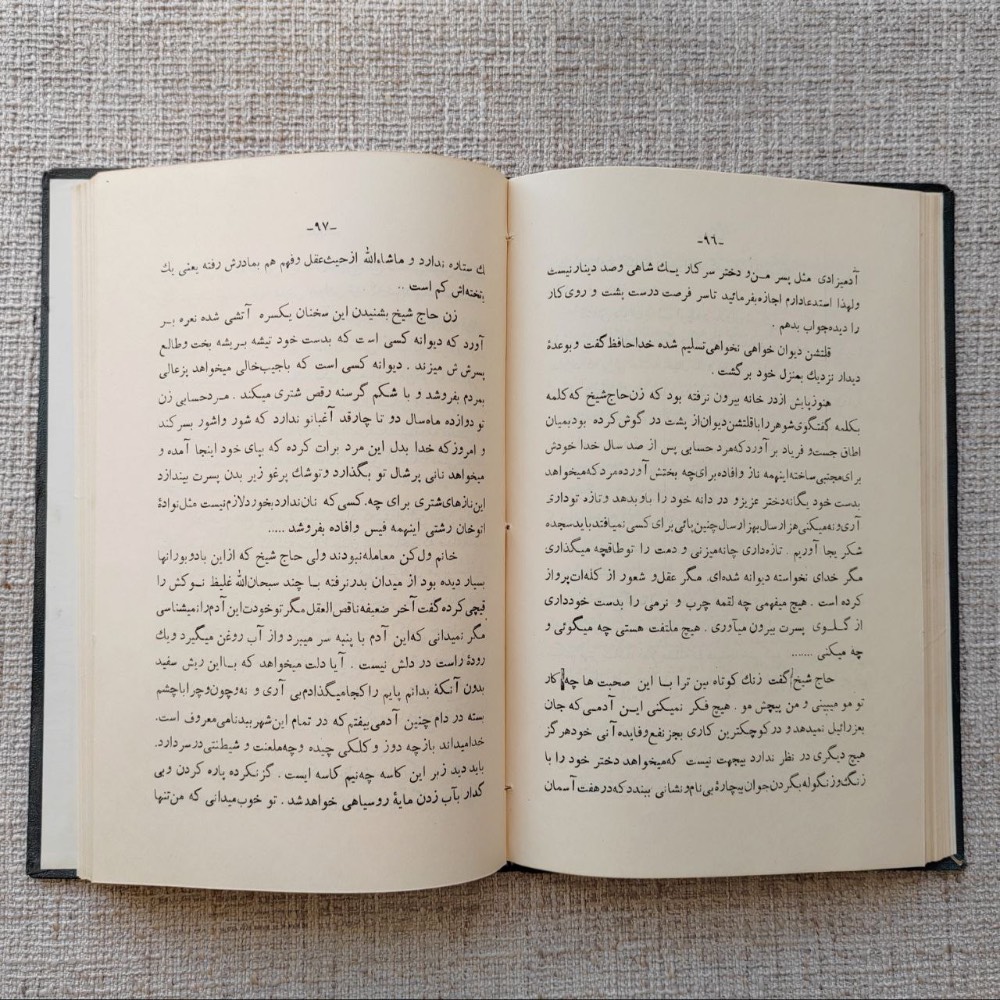 -٩٦-
آدمیزادی مثل پسر من و دختر سر کار یك شاهی وصد دینار نیست
ولهذا استدعا دارم اجازه بفرمائید تاسر فرصت درست پشت و روی کار
را دیده جواب بدهم .
قلتشن دیوان خواهی نخواهی تسلیم شده خداحافظ گفت و بوعدهٔ
دیدار نزدیك بمنزل خود برگشت .
هنوز پایش از در خانه بیرون نرفته بود که زن حاج شیخ که کلمه
بکلمه گفتگوی شوهر را با قلتشن دیوان از پشت در گوش کرده بود بمیان
اطاق جست و فریاد بر آورد که مرد حسابی پس از صد سال خدا خودش
برای مجتبی ساخته اینهمه ناز و افاده برای چه بختش آورده مرد که میخواهد
بدست خود یگانه دختر عزیز و در دانه خود را باو بدهد و تازه تو داری
آری و نه میکنی هزار سال بهزار سال چنین بائی برای کسی نمیافتد باید سجده
شکر بجا آوریم . تازه داری چانه میزنی و دمت را تو طاقچه میگذاری
مگر خدای نخواسته دیوانه شده‌ای . مگر عقل و شعور از کله‌ات پرواز
کرده است . هیچ میفهمی چه لقمه چرب و نرمی را بدست خود داری
از گلوی پسرت بیرون میآوری . هیچ ملتفت هستی چه میگوئی و
چه میکنی .......
حاج شیخ گفت زنك کوتاه بین ترا با این صحبت ها چه کار
تو مو میبینی و من پیچش مو . هیچ فکر نمیکنی این آدمی که جان
بعزرائیل نمیدهد و در کوچکترین کاری بجز نفع و فایده آنی خود هر گز
هیچ دیگری در نظر ندارد بیجهت نیست که میخواهد دختر خود را با
زنگ و زنگوله بگردن جوان بیچارهٔ بی نام و نشانی ببندد که در هفت آسمان
-٩٧-
یك ستاره ندارد و ماشاءالله از حیث عقل وفهم هم بمادرش رفته یعنی یك
تخته‌اش کم است ..
زن حاج شیخ بشنیدن این سخنان یکسره آتشی شده نعره بر
آورد که دیوانه کسی است که بدست خود تیشه بریشه بخت وطالع
پسرش میزند . دیوانه کسی است که با جیب خالی میخواهد پز عالی
بمردم بفروشد و با شکم گرسنه رقص شتری میکند . مرد حسابی زن
تو دوازده ماه سال دو تا چارقد آغبانو ندارد که شور واشور بسر کند
و امروز که خدا بدل این مرد برات کرده که بپای خود اینجا آمده و
میخواهد نانی پر شال تو بگذارد و توشك پرغو زیر بدن پسرت بیندازد
این نازهای شتری برای چه . کسی که نان ندارد بخورد لازم نیست مثل نوادهٔ
انوخان رشتی اینهمه فیس وافاده بفروشد .....
خانم ول کن معامله نبودند ولی حاج شیخ که از این بادو بورانها
بسیار دیده بود از میدان بدر نرفته با چند سبحان‌الله غلیظ نوکش را
قیچی کرده گفت آخر ضعیفه ناقص العقل مگر تو خودت این آدم را نمیشناسی
مگر نمیدانی که این آدم با پنبه سر میبرد و از آب روغن میگیرد و یك
رودهٔ راست در دلش نیست . آیا دلت میخواهد که با این ریش سفید
بدون آنکهٔ بدانم پایم را کجا میگذادم بی آری و نه و چون و چرا باچشم
بسته در دام چنین آدمی بیفتم که در تمام این شهر ببدنامی معروف است .
خدا میداند باز چه دوز و کلکی چیده وچه ملعنت و شیطنتی در سر دارد .
باید دید زیر این کاسه چه نیم کاسه ایست . گز نکرده پاره کردن و بی
گدار بآب زدن مایهٔ روسیاهی خواهد شد . تو خوب میدانی که من تنها